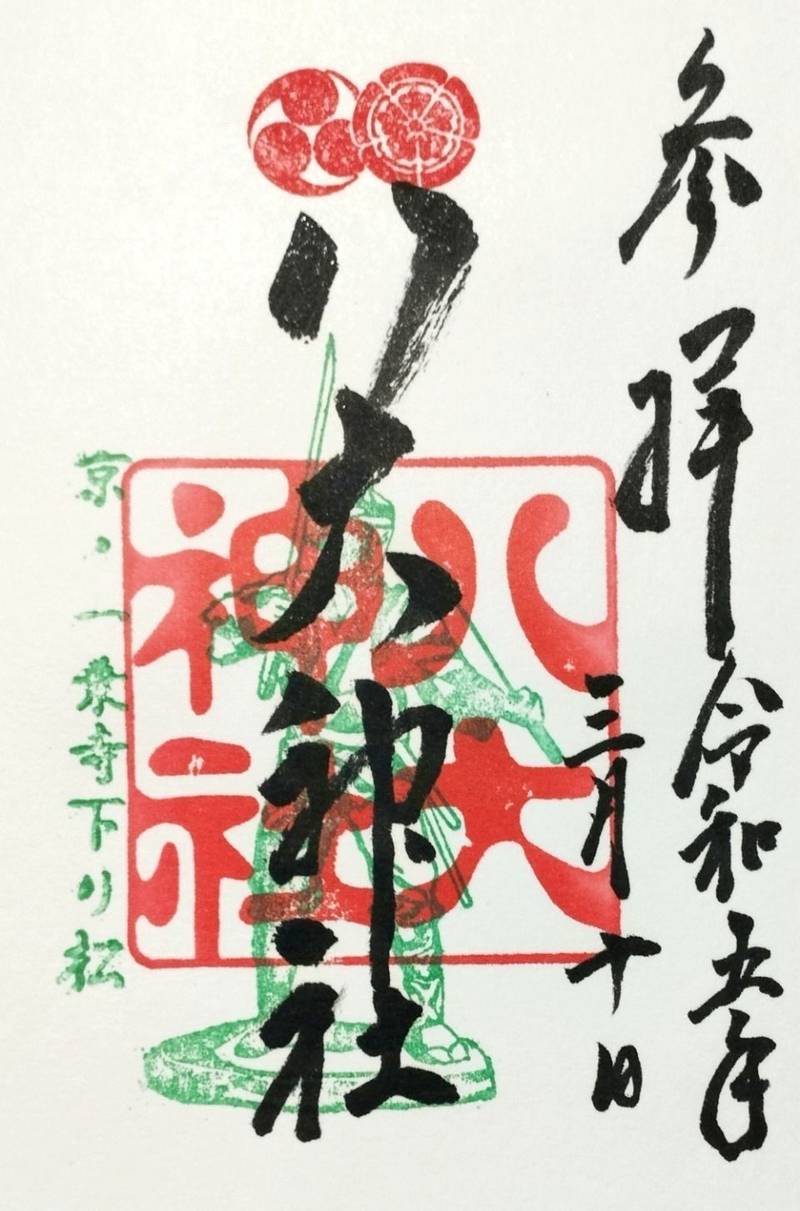 参拝 令和五年
三月十日
八大神社
八大
神社
京・一乗寺下り松